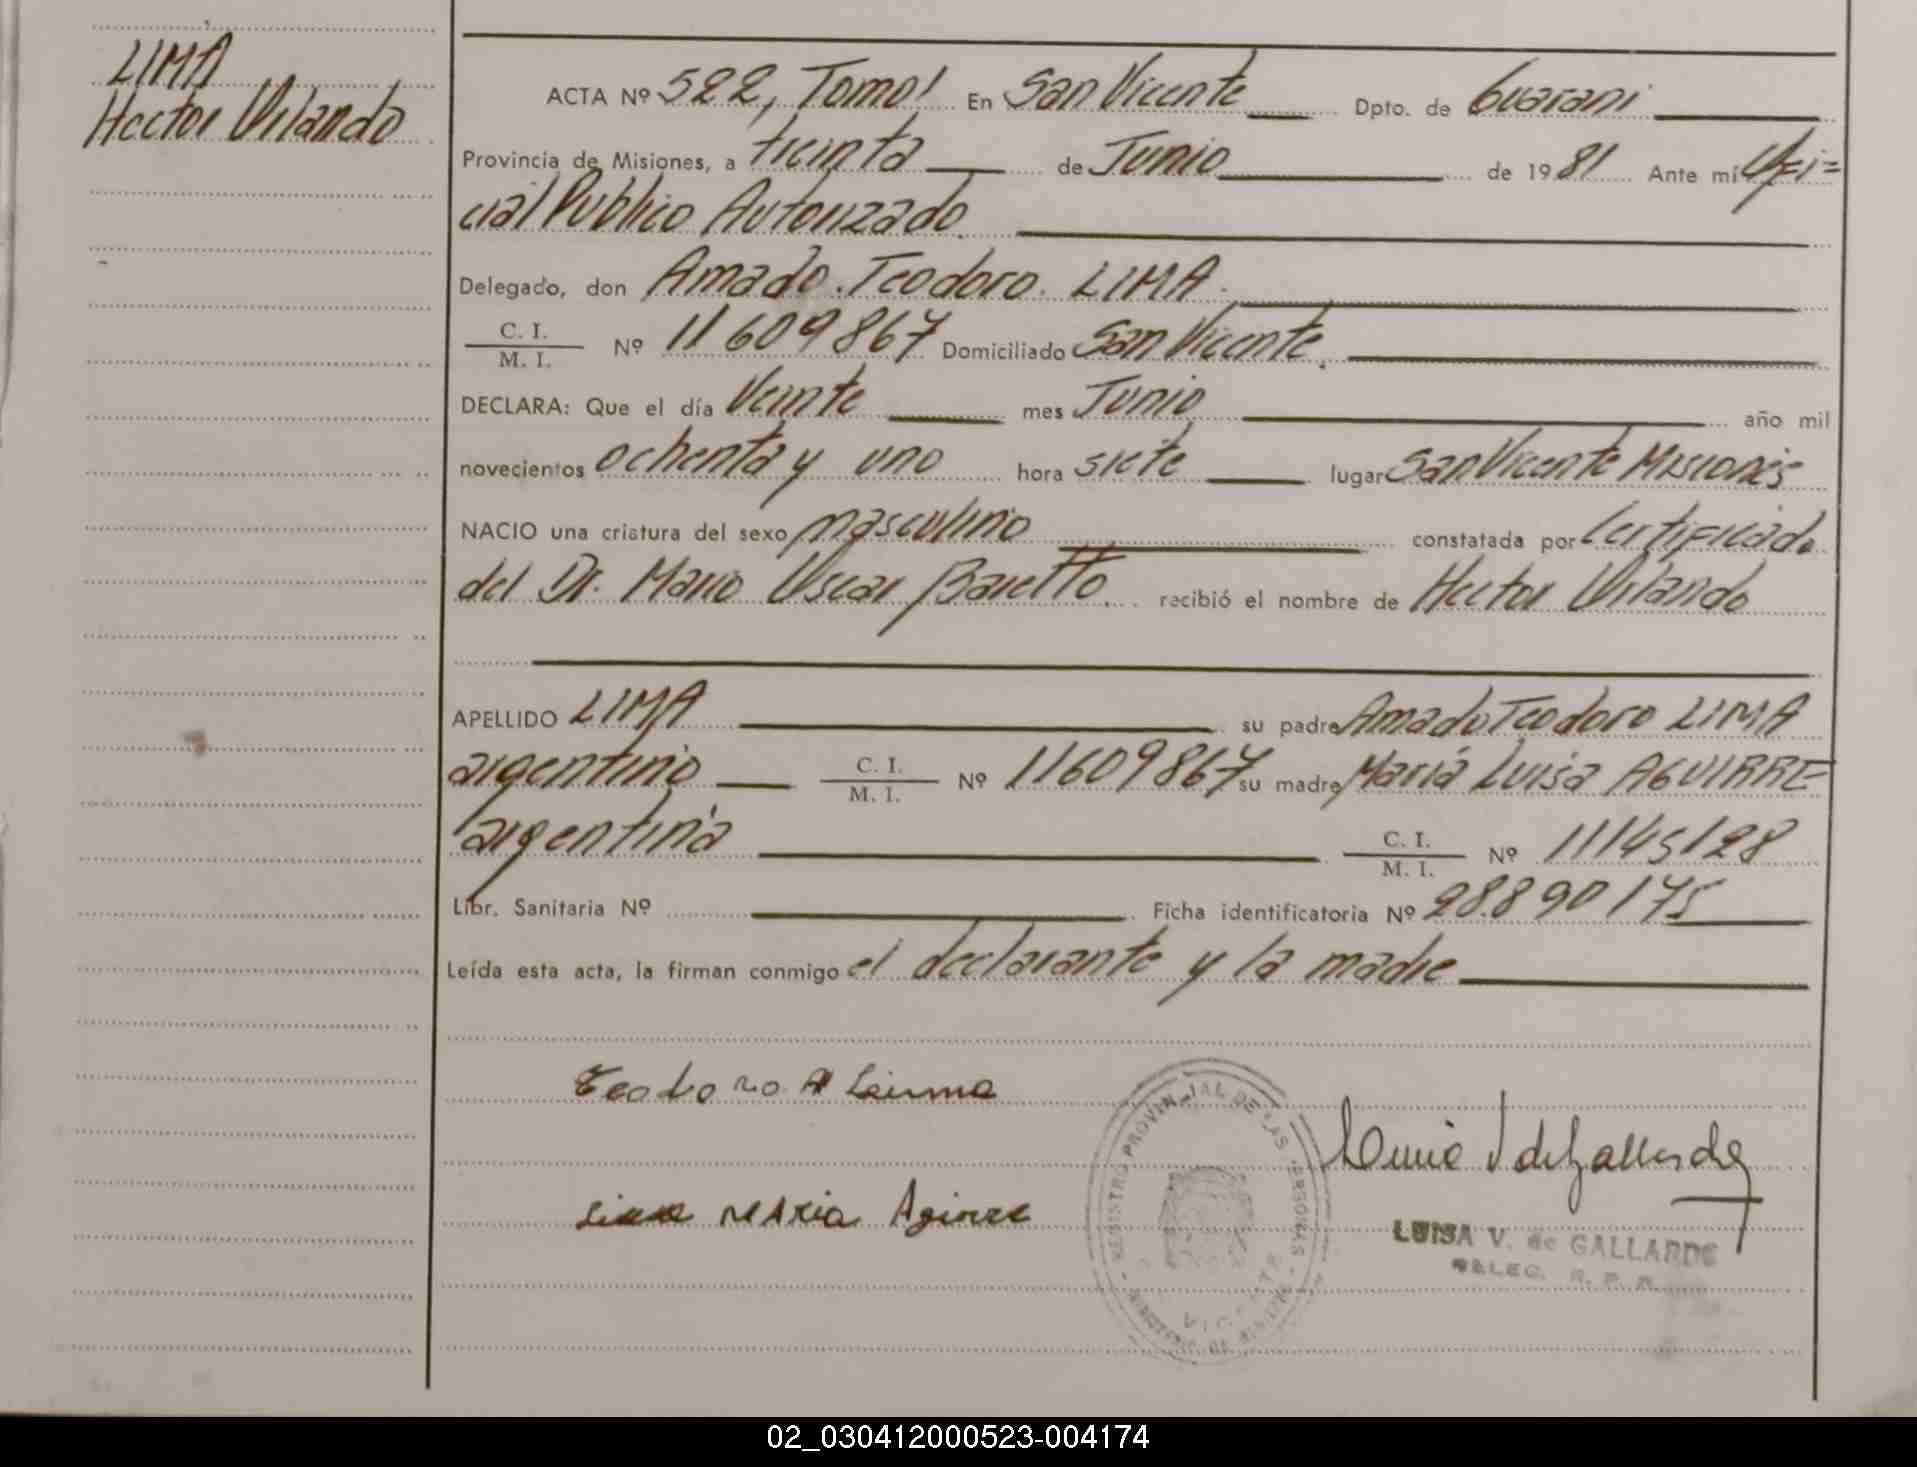 LIMA
Hector Orlando
ACTA Nº 522, Tomo I En San Vicente Dpto. de Guarani
Provincia de Misiones, a treinta de Junio de 1981 Ante mi Ofi=
cial Publico Autorizado
Delegado, don Amado Teodoro LIMA
C. I.
M. I. Nº 11609867 Domiciliado San Vicente
DECLARA: Que el día Veinte mes Junio año mil
novecientos ochenta y uno hora siete lugar San Vicente Misiones
NACIO una criatura del sexo masculino constatada por Certificado
del Dr. Mario Oscar Baretto recibió el nombre de Hector Orlando
APELLIDO LIMA su padre Amado Teodoro LIMA
argentino C. I.
M. I. Nº 11609867 su madre María Luisa AGUIRRE
argentina C. I.
M. I. Nº 11145128
Libr. Sanitaria Nº Ficha identificatoria Nº 28.890175
Leída esta acta, la firman conmigo el declarante y la madre
Teodoro A Leima
Maria Agirre
REGISTRO PROVINCIAL DE LAS PERSONAS
VICENTE
LUISA V. de GALLARDO
DELEG. R. P. P.
02_030412000523-004174